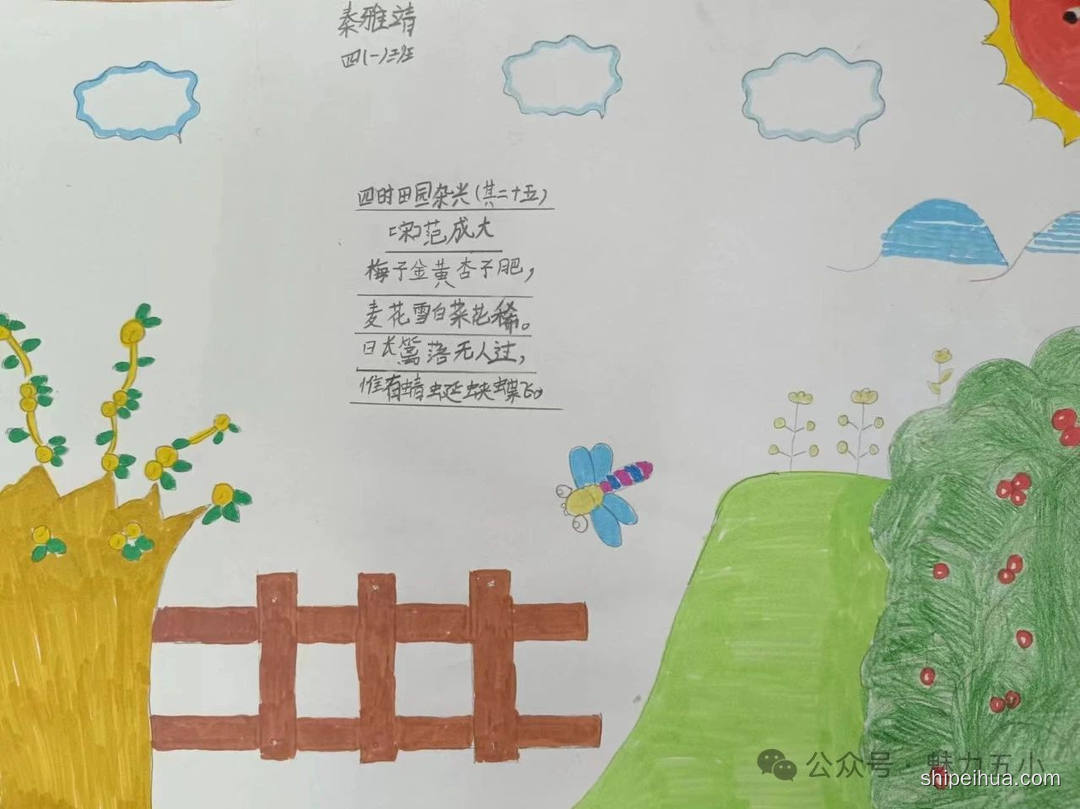 秦雅靖
四(一)班
四时田园杂兴(其二十五)
[宋]范成大
梅子金黄杏子肥,
麦花雪白菜花稀。
日长篱落无人过,
惟有蜻蜓蛱蝶飞。
公众号·魅力五小
shipeihua.com